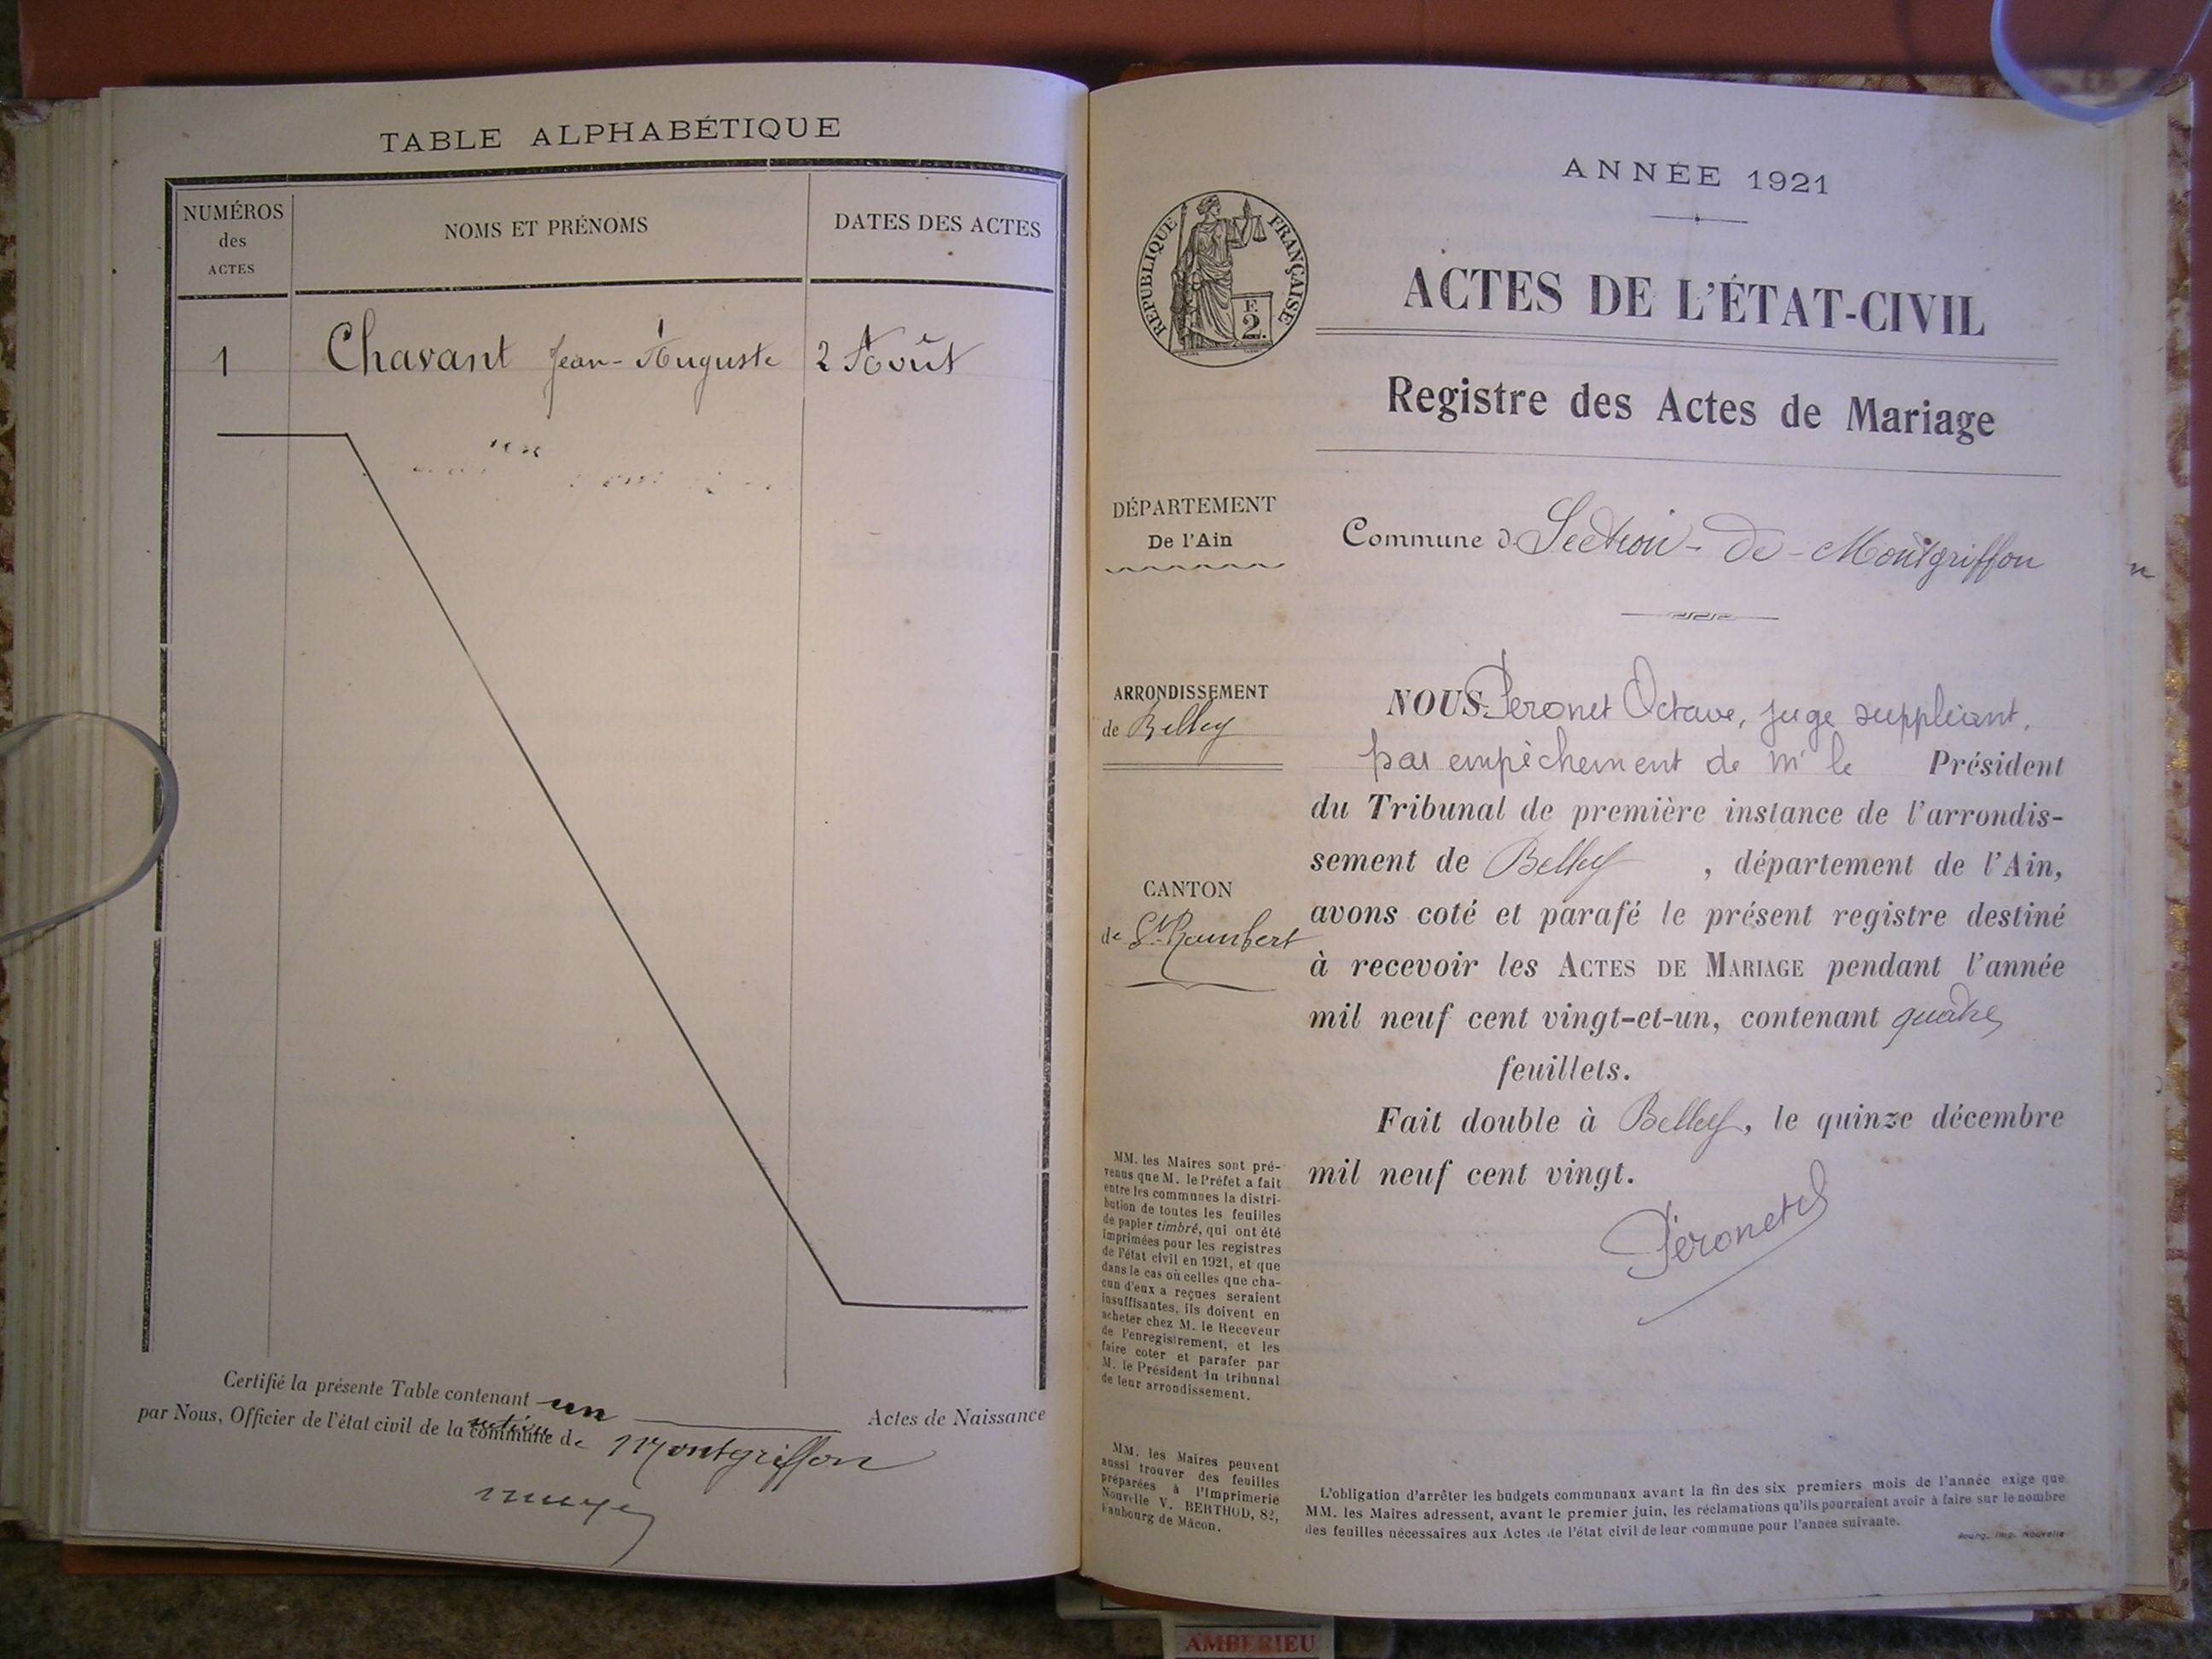 TABLE ALPHABÉTIQUE
NUMÉROS
des
ACTES
NOMS ET PRÉNOMS
DATES DES ACTES
1 Chavant Jean-Auguste 2 Août
Certifié la présente Table contenant un Actes de Naissance
par Nous, Officier de l'état civil de la commune section de Montgriffon
ANNÉE 1921
RÉPUBLIQUE FRANÇAISE
2
ACTES DE L'ÉTAT-CIVIL
Registre des Actes de Mariage
DÉPARTEMENT
De l'Ain
Commune d Section-de-Montgriffon
ARRONDISSEMENT
de Belley
CANTON
de St-Rambert
NOUS Peronet Octave, juge suppléant,
par empêchement de Mr le Président
du Tribunal de première instance de l'arrondis-
sement de Belley, département de l'Ain,
avons coté et parafé le présent registre destiné
à recevoir les ACTES DE MARIAGE pendant l'année
mil neuf cent vingt-et-un, contenant quatre
feuillets.
Fait double à Belley, le quinze décembre
mil neuf cent vingt.
Péronet
MM. les Maires sont pré-
venus que M. le Préfet a fait
entre les communes la distri-
bution de toutes les feuilles
de papier timbré, qui ont été
imprimées pour les registres
de l'état civil en 1921, et que
dans le cas où celles que cha-
cun d'eux a reçues seraient
insuffisantes, ils doivent en
acheter chez M. le Receveur
de l'enregistrement, et les
faire coter et parafer par
M. le Président du tribunal
de leur arrondissement.
MM. les Maires peuvent
aussi trouver des feuilles
préparées à l'Imprimerie
Nouvelle V. BERTHOD, 82,
Faubourg de Mâcon.
L'obligation d'arrêter les budgets communaux avant la fin des six premiers mois de l'année exige que
MM. les Maires adressent, avant le premier juin, les réclamations qu'ils pourraient avoir à faire sur le nombre
des feuilles nécessaires aux Actes de l'état civil de leur commune pour l'année suivante.
Bourg, Imp. Nouvelle
AMBERIEU